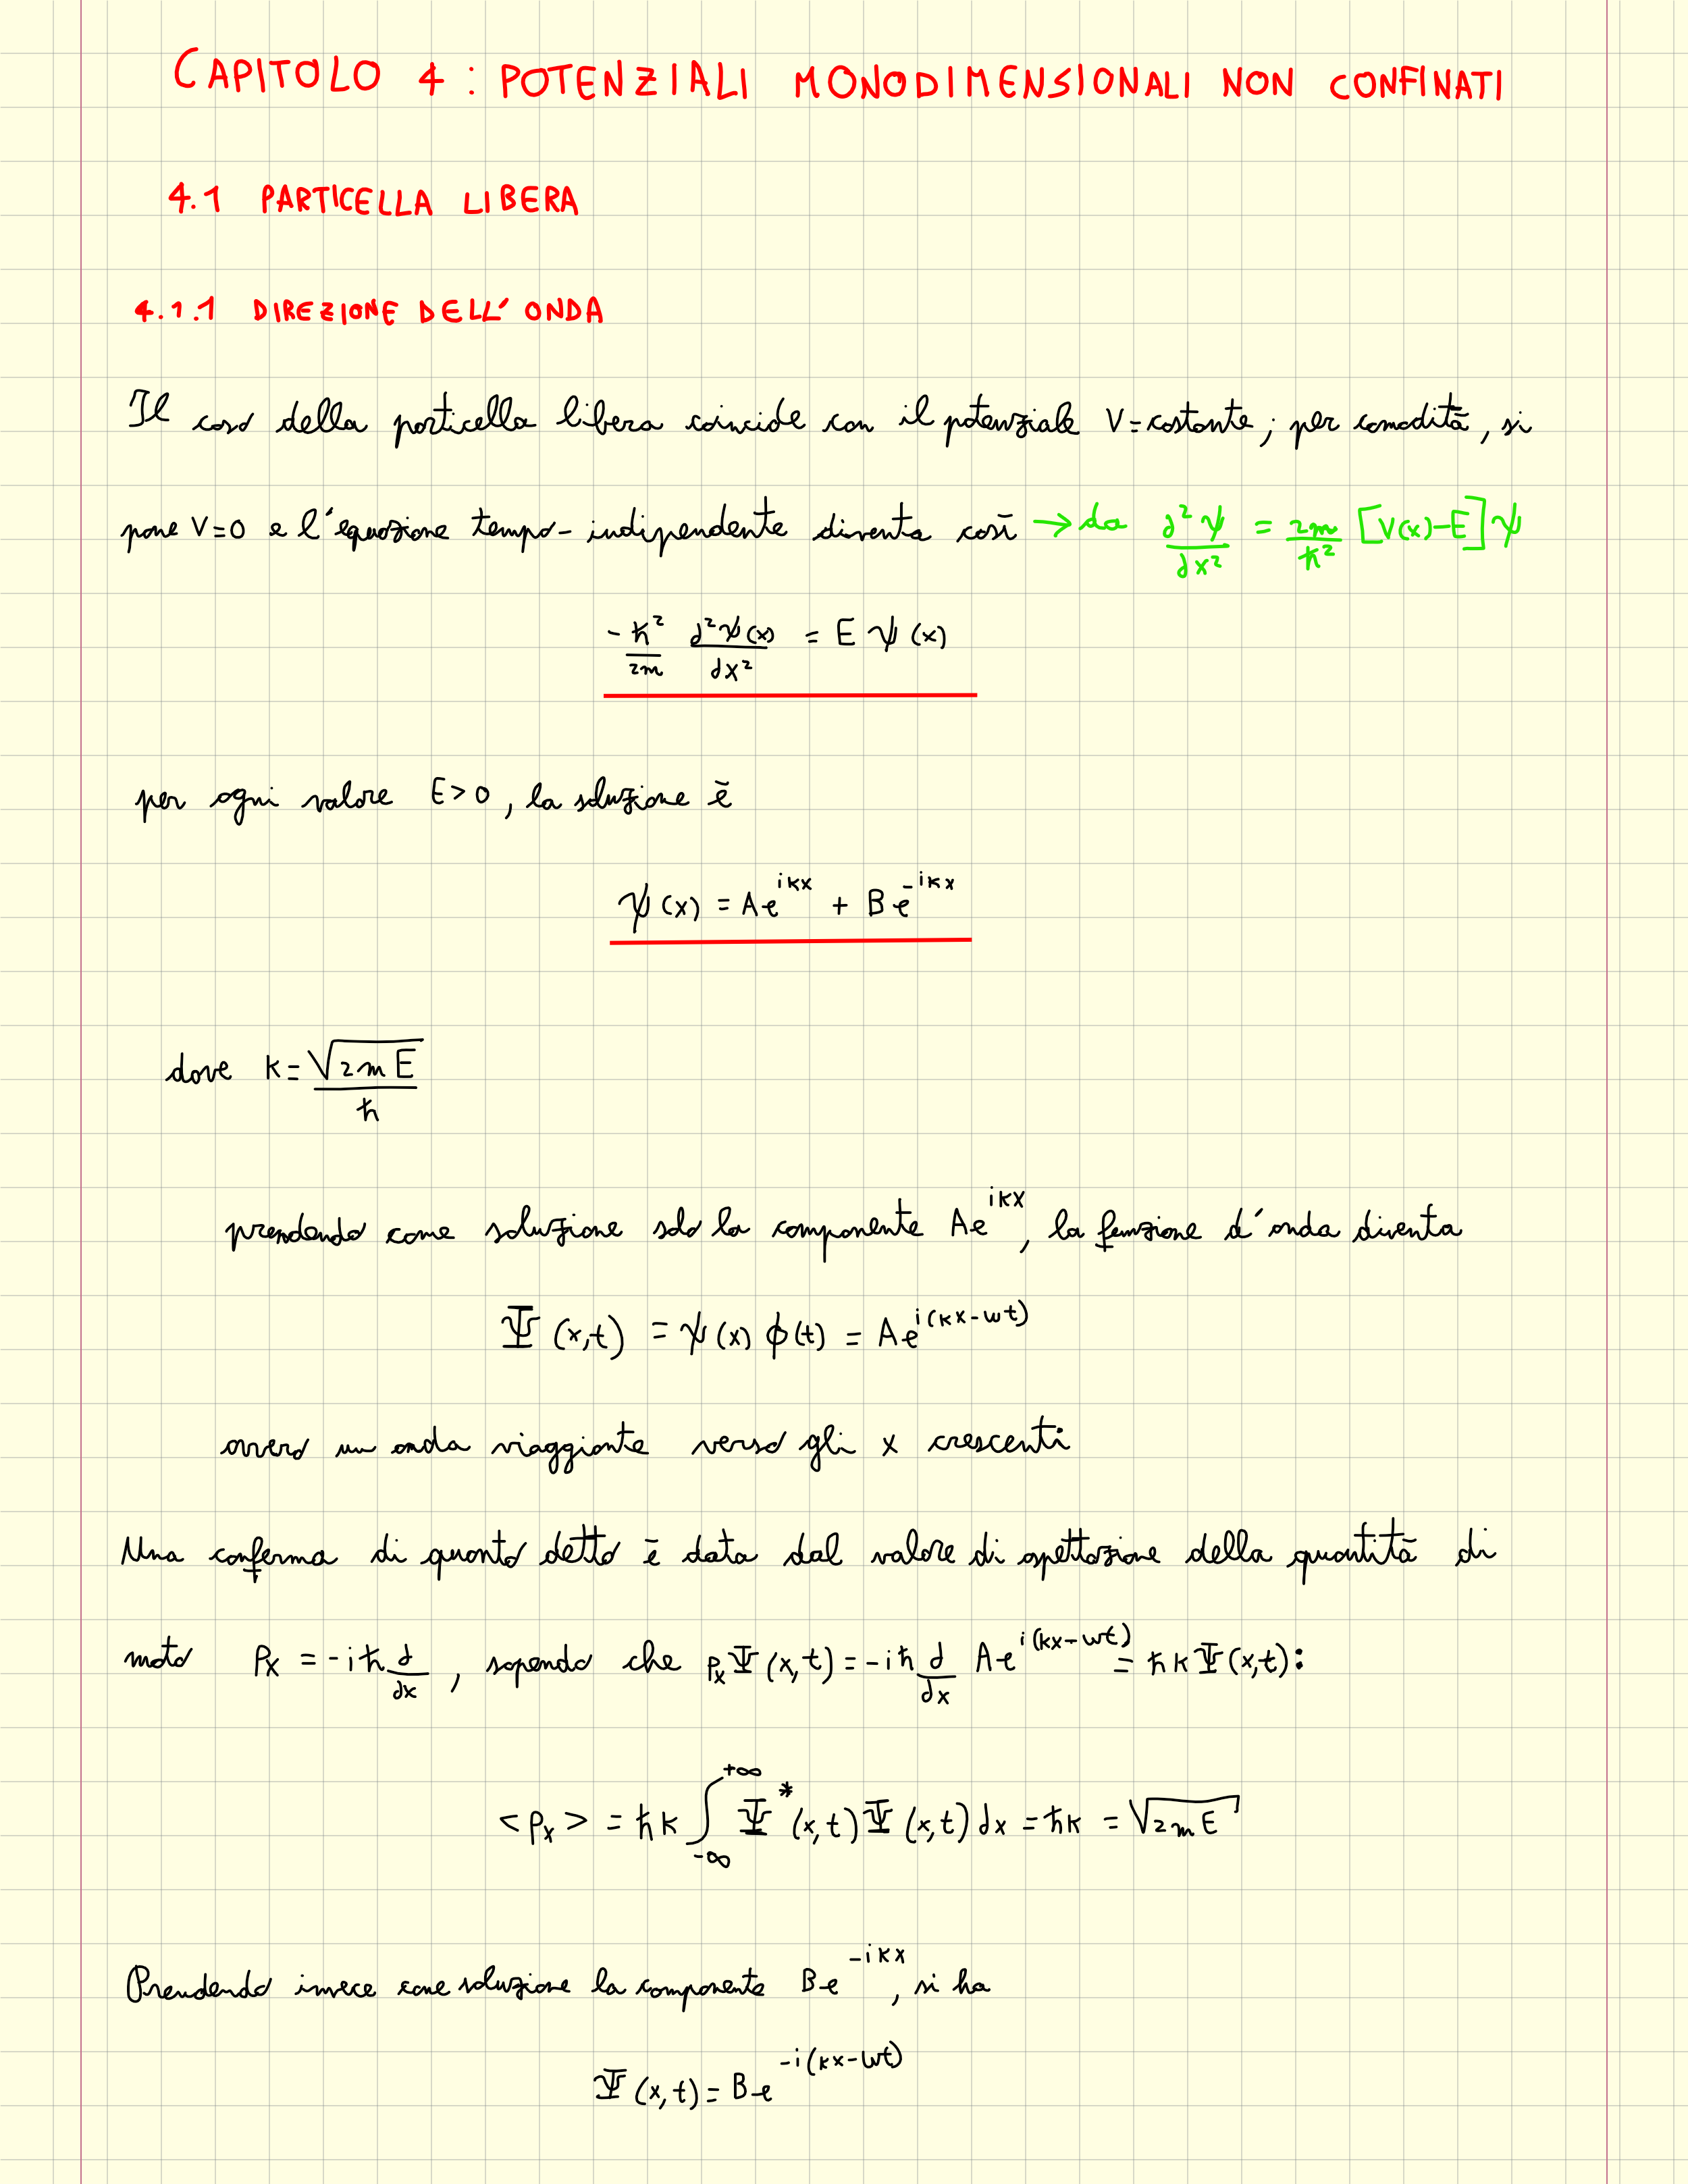 CAPITOLO 4 : POTENZIALI MONODIMENSIONALI NON CONFINATI
4.1 PARTICELLA LIBERA
4.1.1 DIREZIONE DELL' ONDA
Il caso della particella libera coincide con il potenziale V=costante; per comodità, si
pone V=0 e l'equazione tempo-indipendente diventa così → da d²ψ/dx² = 2m/ħ² [V(x)-E]ψ
-ħ²/2m d²ψ(x)/dx² = E ψ(x)
per ogni valore E>0, la soluzione è
ψ(x) = Ae^{ikx} + Be^{-ikx}
dove k = √(2mE)/ħ
prendendo come soluzione solo la componente Ae^{ikx}, la funzione d'onda diventa
Ψ(x,t) = ψ(x) ϕ(t) = Ae^{i(kx-wt)}
ovvero un onda viaggiante verso gli x crescenti
Una conferma di quanto detto è data dal valore di aspettazione della quantità di
moto Px = -iħ d/dx, sapendo che pxΨ(x,t) = -iħ d/dx Ae^{i(kx-wt)} = ħkΨ(x,t):
<px> = ħk ∫_{-∞}^{+∞} Ψ*(x,t)Ψ(x,t)dx = ħk = √(2mE)
Prendendo invece come soluzione la componente Be^{-ikx}, si ha
Ψ(x,t) = Be^{-i(kx-wt)}